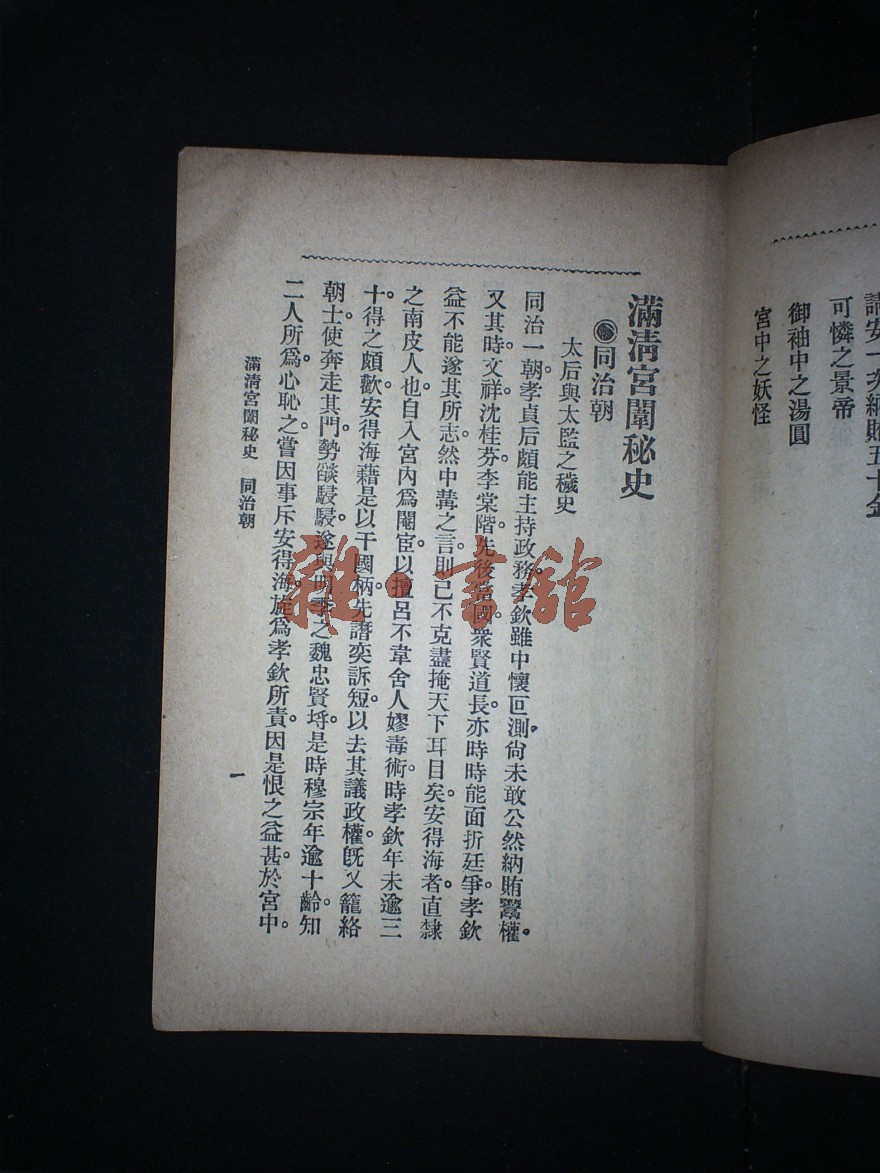 可憐之景帝
御袖中之湯圓
宮中之妖怪
滿清宮闈秘史
同治朝
太后與太監之穢史
同治一朝。孝貞后頗能主持政務。孝欽雖中懷叵測。尙未敢公然納賄鬻權。
又其時。文祥沈桂芬。李棠階。先後當國。衆賢道長。亦時時能面折廷爭。孝欽
益不能遂其所志。然中冓之言。則已不克盡掩天下耳目矣。安得海者。直隸
之南皮人也。自入宮內爲閹宦。以擅呂不韋舍人嫪毐術。時孝欽年未逾三
十。得之頗歡。安得海藉是以干國柄。先譖奕訴短。以去其議政權。旣又籠絡
朝士。使奔走其門。勢燄駸駸。遂與明季之魏忠賢埒。是時穆宗年逾十齡。知
二人所爲。心恥之。嘗因事斥安得海。旋爲孝欽所責。因是恨之益甚。於宮中。
滿清宮闈秘史 同治朝
一
雜·書館